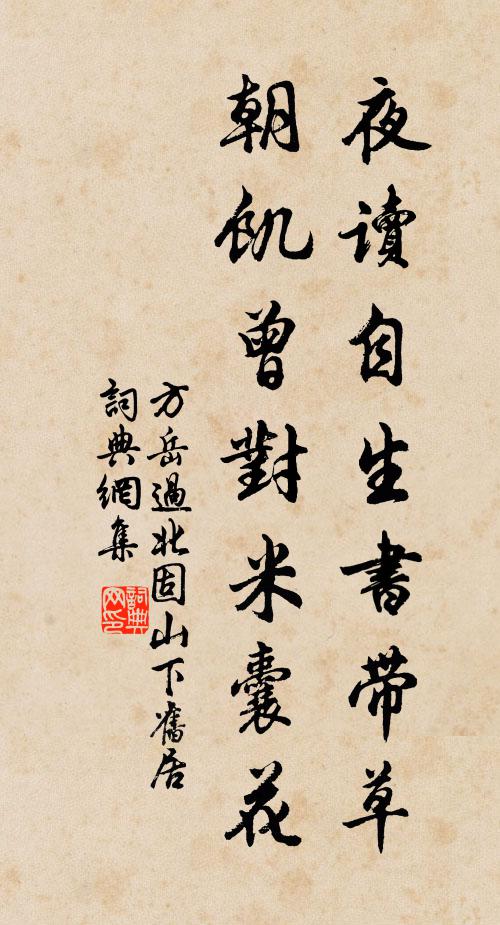 夜讀自生書帶草
朝飢曾對米囊花
方岳過北固山下舊居
詞典網集
詞典网印